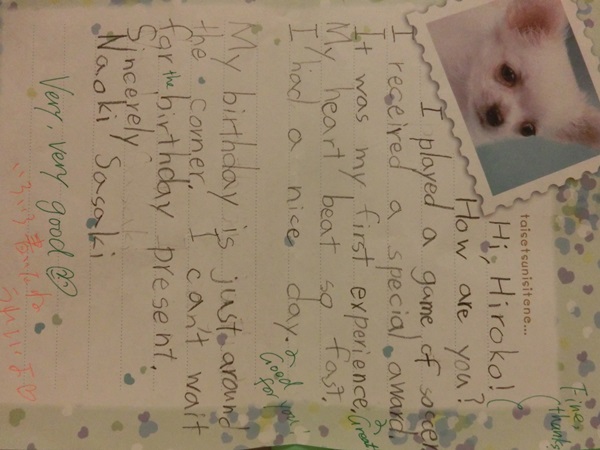 taisetsunisitene...
Hi, Hiroko!
Fine, thanks!
How are you?
I played a game of soccer
I received a special award.
It was my first experience.
Great
My heart beat so fast.
I had a nice day.
Good for you!
My birthday is just around
the corner. I can't wait
for the birthday present.
Sincerely
Naoki Sasaki
Very, very good
うれしいよ♡